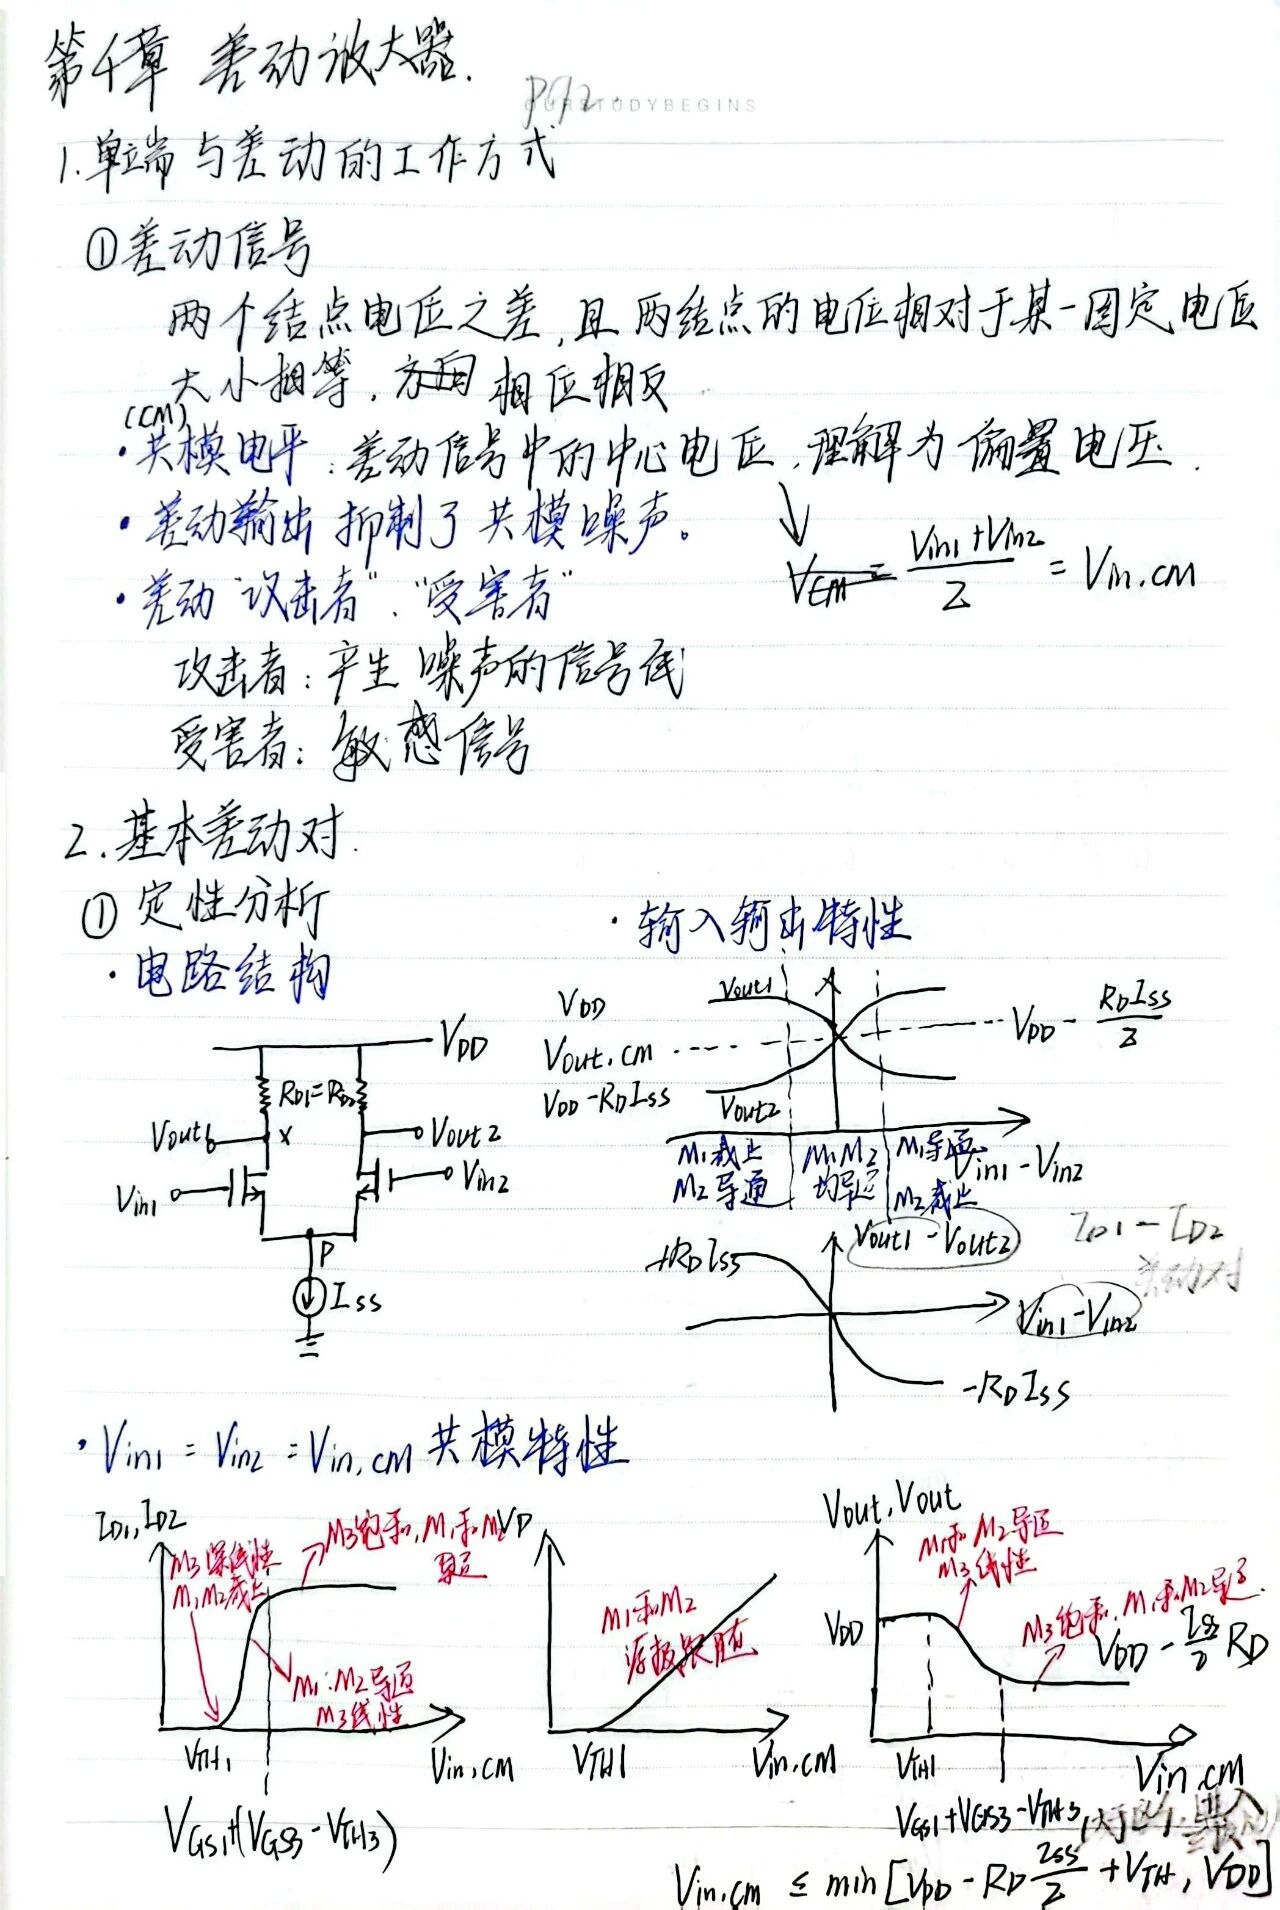 第4章 差动放大器.
P92.
OURSTUDYBEGINS
1.单端与差动的工作方式
①差动信号
两个结点电位之差,且两结点的电位相对于某一固定电位
大小相等,方向相位相反
(CM)
·共模电平:差动信号中的中心电压,理解为偏置电压.
·差动输出抑制了共模噪声。
VCM = (Vin1+Vin2)/2 = Vin.CM
·差动"攻击者"."受害者"
攻击者:产生噪声的信号
受害者:敏感信号
2.基本差动对.
①定性分析
·电路结构
VDD
RD1=RD2
Vout1
X
Vout2
Vin1
Vin2
P
ISS
·输入输出特性
VDD
Vout1
Vout.CM
VDD - RDISS/2
VDD-RDISS
Vout2
M1截止
M2导通
M1 M2
均导通
M1导通
M2截止
Vin1-Vin2
Vout1-Vout2
ID1-ID2
差动对
+RDISS
Vin1-Vin2
-RDISS
·Vin1=Vin2=Vin,CM共模特性
ID1,ID2
M3深线性
M1,M2截止
M3饱和,M1和M2
导通
M1.M2导通
M3线性
VTH1
Vin,CM
VGS1+(VGS3-VTH3)
VD
M1和M2
源极跟随
VTH1
Vin,CM
Vout,Vout
M1和M2导通
M3线性
VDD
M3饱和,M1和M2导通.
VDD - ISS/2 RD
VTH1
Vin,CM
VGS1+VGS3-VTH3
Vin,CM ≤ min[VDD-RD ISS/2 +VTH, VDD]